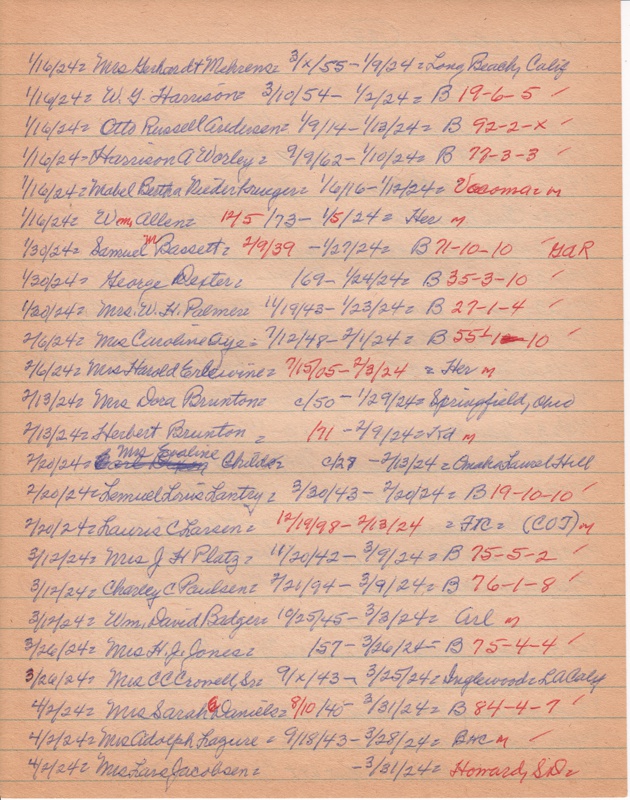 1/16/24= Mrs Gerhardt Mehrens= 3/x/55 - 1/9/24= Long Beach, Calif
1/16/24= W. G. Harrison= 3/10/54 - 1/2/24= B 19-6-5 ✓
1/16/24= Otto Russell Andersen= 1/9/14 - 1/13/24= B 92-2-x ✓
1/16/24= Harrison A Worley= 9/9/62 - 1/10/24= B 77-3-3 ✓
1/16/24= Mabel Bertha Niederkrueger= 1/6/16 - 1/12/24= Vacoma= m
1/16/24= Wm, Allen= 12/5/73 - 1/5/24= Her m
1/30/24= Samuel M Bassett= 2/9/39 - 1/27/24= B 71-10-10 ✓ GAR
1/30/24= George Dexter= /69 - 1/24/24= B 35-3-10 ✓
1/30/24= Mrs. W. H. Palmer= 11/19/43 - 1/23/24= B 27-1-4 ✓
2/6/24= Mrs Caroline Aye= 7/12/48 - 2/1/24= B 55 10
2/6/24= Mrs Harold Erlewine= 7/15/05 - 2/3/24 = Her m
2/13/24= Mrs Dora Brunton= c/50 - 1/29/24= Springfield, Ohio
2/13/24= Herbert Brunton = /71 - 2/9/24= m
2/20/24= Mrs Evaline Childs= c/27 - 2/13/24= Omaha Laurel Hill
2/20/24= Lemuel Louis Lantry= 3/30/43 - 2/20/24= B 19-10-10 ✓
2/20/24= Lauris C Larsen= 12/19/98 - 2/13/24 = FtC= (COJ) m
3/12/24= Mrs J H Platz= 11/20/42 - 3/9/24= B 75-5-2 ✓
3/12/24= Charley C Paulsen= 2/21/94 - 3/9/24= B 76-1-8 ✓
3/12/24= Wm, David Badger= 10/25/45 - 3/3/24= Arl m
3/26/24= Mrs H. J. Jones= /57 - 3/26/24= B 75-4-4 ✓
3/26/24= Mrs CC Crowell, Sr= 9/x/43 - 3/25/24= Inglewood= LA Calif
4/2/24= Mrs Sarah Daniels= 8/10/40 - 3/31/24= B 84-4-7 ✓
4/2/24= Mrs Adolph Lagure= 9/18/43 - 3/28/24= BHC m ✓
4/2/24= Mrs Lars Jacobsen= - 3/31/24= Howard, S.D=